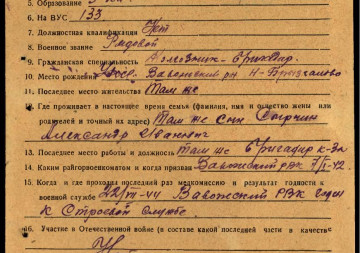 5. Образование
6. На ВУС 133
7. Должностная квалификация Нет
8. Военное звание Рядовой
9. Гражданская специальность Бригадир.
10. Место рождения Вавожский рн
11. Последнее место жительства Там же
12. Где проживает в настоящее время семья (фамилия, имя и отчество жены или
родителей и точный их адрес) Там же сын
Александр Иванович
13. Последнее место работы и должность Там же Бригадир к-за
14. Каким райгорвоенкоматом и когда призван Вавожский РВК
15. Когда и где проходил последний раз медкомиссию и результат годности к
военной службе Вавожский РВК Годен
К Строевой службе
16. Участие в Отечественной войне (в составе какой последней части в качестве